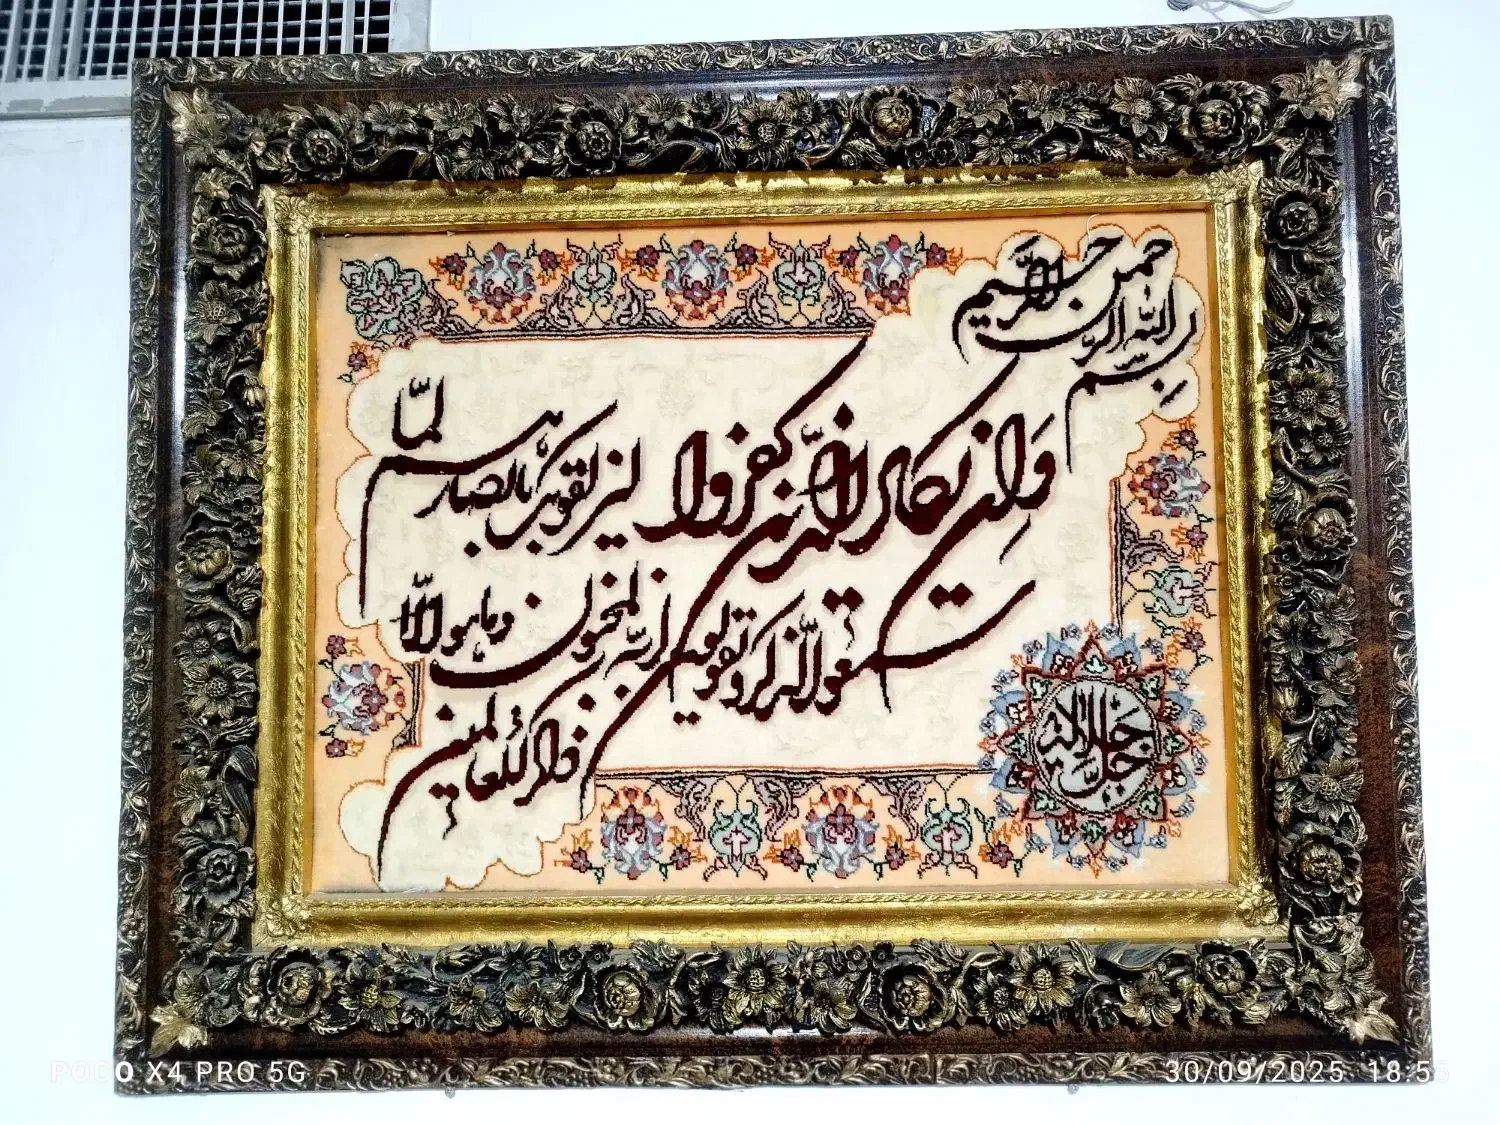 بسم الله الرحمن الرحیم
وَإن یکاد الذین کفروا لیزلقونک بأبصارهم لمّا
سمعوا الذّکر و یقولون إنّه لمجنون وما هو إلّا
ذکرٌ للعالمین
جلّ جلاله
POCO X4 PRO 5G
30/09/2025 18:55